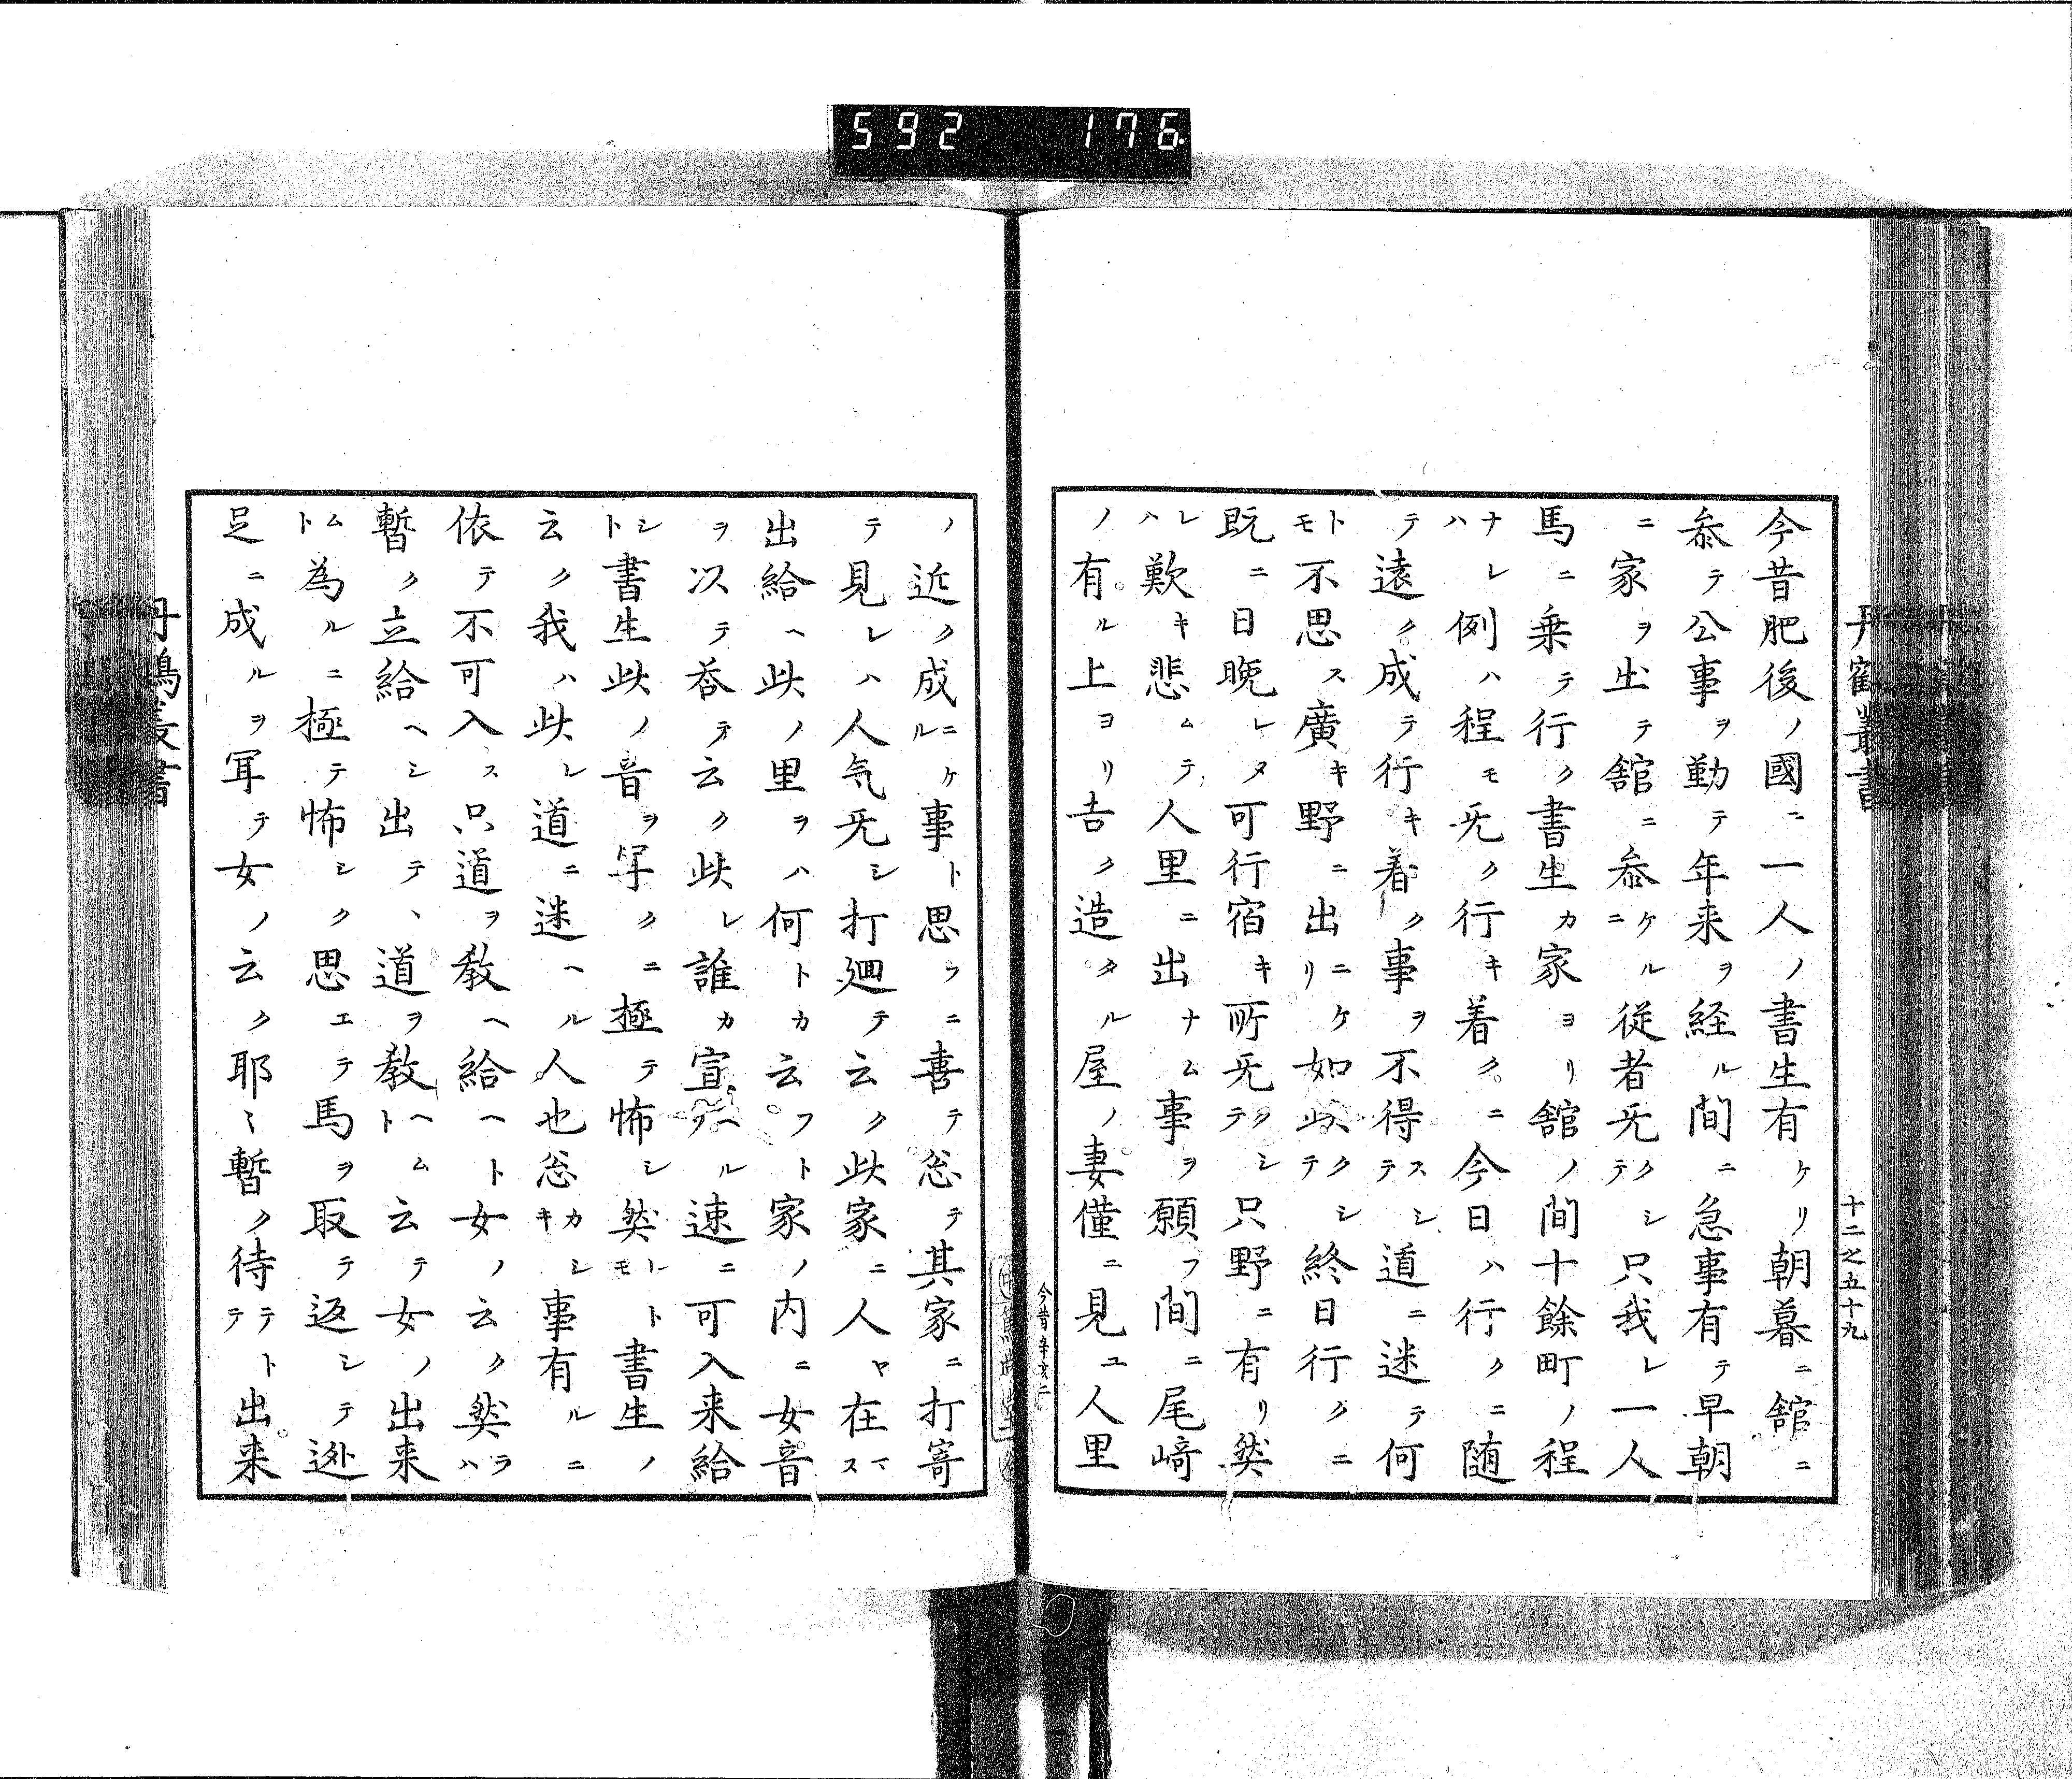 592 176
丹鶴叢書
十二之五十九
今昔肥後ノ國ニ一人ノ書生有ケリ朝暮ニ舘ニ
参テ公事ヲ勤テ年来ヲ経ル間ニ急事有テ早朝
ニ家ヲ出テ舘ニ参ケルニ従者旡クシテ只我レ一人
馬ニ乗テ行ク書生カ家ヨリ舘ノ間十餘町ノ程
ナレハ例ハ程モ旡ク行キ着クニ今日ハ行クニ随
テ遠ク成テ行キ着ク事ヲ不得スシテ道ニ迷テ何
トモ不思ス廣キ野ニ出ニケリ如此クシテ終日行クニ
既ニ日晩レヌ可行宿キ所旡クシテ只野ニ有リ然
レハ歎キ悲ムテ人里ニ出ナム事ヲ願フ間ニ尾﨑
ノ有ル上ヨリ吉ク造タル屋ノ妻僅ニ見ユ人里
今昔辛亥二
ノ近ク成ニケル事ト思フニ喜テ忩テ其家ニ打寄
テ見レハ人気旡シ打廻テ云ク此家ニ人ヤ在マス
出給ヘ此ノ里ヲハ何トカ云フト家ノ内ニ女音
ヲ以テ荅テ云ク此レ誰カ宣ヘルソ速ニ可入来給
シト書生此ノ音ヲ聞クニ極テ怖シ然レトモ書生ノ
云ク我ハ此レ道ニ迷ヘル人也忩カシキ事有ルニ
依テ不可入ス只道ヲ教ヘ給ヘト女ノ云ク然ラハ
暫ク立給ヘシ出テ、道ヲ教ヘムト云テ女ノ出来
ムト為ルニ極テ怖シク思エテ馬ヲ取テ返シテ迯
足ニ成ルヲ聞テ女ノ云ク耶〻暫ク待テトテ出来
丹鶴叢書